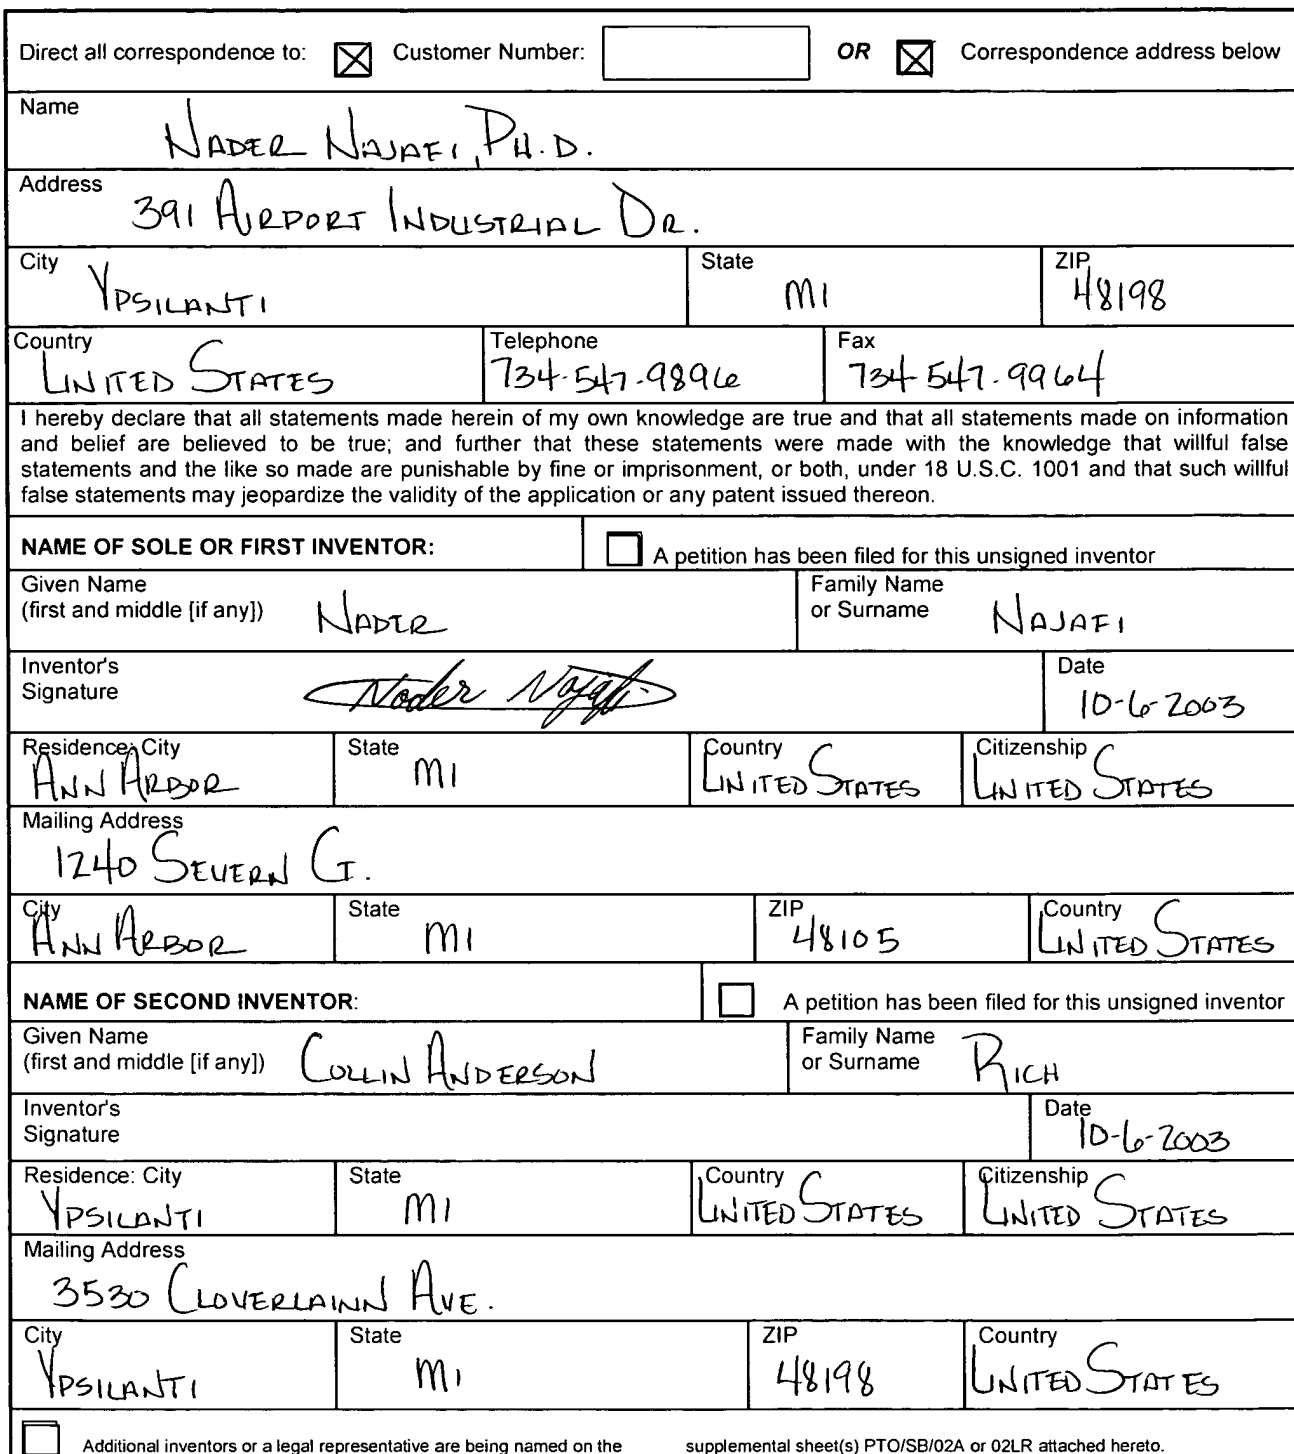 Direct all correspondence to: ☒ Customer Number: OR ☒ Correspondence address below
Name
NADER NAJAFI, PH.D.
Address
391 AIRPORT INDUSTRIAL DR.
City State ZIP
YPSILANTI MI 48198
Country Telephone Fax
UNITED STATES 734-547-9896 734-547-9964
I hereby declare that all statements made herein of my own knowledge are true and that all statements made on information
and belief are believed to be true; and further that these statements were made with the knowledge that willful false
statements and the like so made are punishable by fine or imprisonment, or both, under 18 U.S.C. 1001 and that such willful
false statements may jeopardize the validity of the application or any patent issued thereon.
NAME OF SOLE OR FIRST INVENTOR: ☐ A petition has been filed for this unsigned inventor
Given Name Family Name
(first and middle [if any]) NADER or Surname NAJAFI
Inventor's Date
Signature Nader Najafi 10-6-2003
Residence: City State Country Citizenship
ANN ARBOR MI UNITED STATES UNITED STATES
Mailing Address
1240 SEVERN CT.
City State ZIP Country
ANN ARBOR MI 48105 UNITED STATES
NAME OF SECOND INVENTOR: ☐ A petition has been filed for this unsigned inventor
Given Name Family Name
(first and middle [if any]) COLLIN ANDERSON or Surname RICH
Inventor's Date
Signature 10-6-2003
Residence: City State Country Citizenship
YPSILANTI MI UNITED STATES UNITED STATES
Mailing Address
3530 CLOVERLAWN AVE.
City State ZIP Country
YPSILANTI MI 48198 UNITED STATES
☐ Additional inventors or a legal representative are being named on the supplemental sheet(s) PTO/SB/02A or 02LR attached hereto.